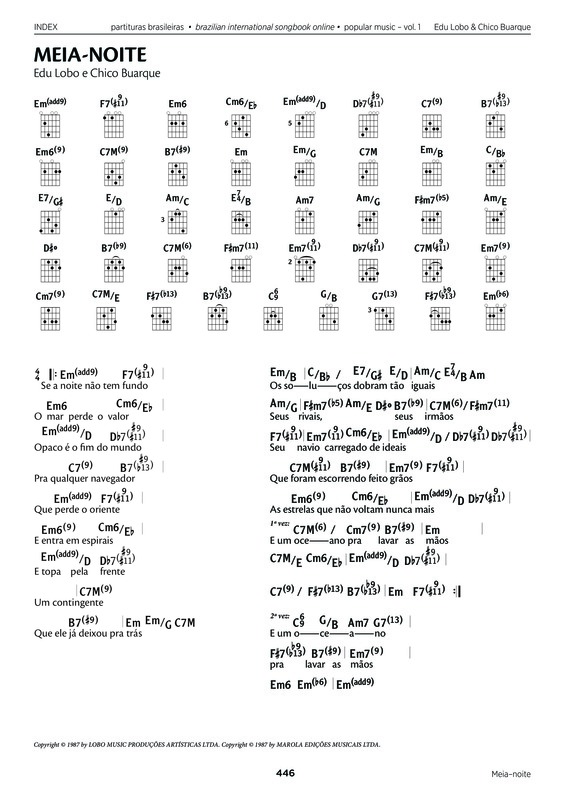 INDEX partituras brasileiras • brazilian international songbook online • popular music – vol. 1 Edu Lobo & Chico Buarque
MEIA-NOITE
Edu Lobo e Chico Buarque
Em(add9) F7(♯11 9) Em6 Cm6/E♭ Em(add9)/D D♭7(♯11 ♯9) C7(9) B7(♭13 ♯9)
6 5
Em6(9) C7M(9) B7(♯9) Em Em/G C7M Em/B C/B♭
E7/G♯ E/D Am/C E7 4/B Am7 Am/G F♯m7(♭5) Am/E
3
D♯º B7(♭9) C7M(6) F♯m7(11) Em7(11 9) D♭7(♯11 9) C7M(♯11 9) Em7(9)
2
Cm7(9) C7M/E F♯7(♭13) B7(♭13 ♭9) C6 9 G/B G7(13) F♯7(♭13 ♭9) Em(♭6)
3
4 4 ‖: Em(add9) F7(♯11 9) |
Se a noite não tem fundo
Em6 Cm6/E♭ |
O mar perde o valor
Em(add9)/D D♭7(♯11 ♯9) |
Opaco é o fim do mundo
C7(9) B7(♭13 ♯9) |
Pra qualquer navegador
Em(add9) F7(♯11 9) |
Que perde o oriente
Em6(9) Cm6/E♭ |
E entra em espirais
Em(add9)/D D♭7(♯11 ♯9) |
E topa pela frente
| C7M(9)
Um contingente
B7(♯9) | Em Em/G C7M
Que ele já deixou pra trás
Em/B | C/B♭ / E7/G♯ E/D | Am/C E7 4/B Am
Os so——lu——ços dobram tão iguais
Am/G | F♯m7(♭5) Am/E D♯º B7(♭9) | C7M(6) / F♯m7(11)
Seus rivais, seus irmãos
F7(♯11 9) | Em7(11 9) Cm6/E♭ | Em(add9)/D / D♭7(♯11 9) D♭7(♯11 ♯9) |
Seu navio carregado de ideais
C7M(♯11 9) B7(♯9) | Em7(9) F7(♯11 9) |
Que foram escorrendo feito grãos
Em6(9) Cm6/E♭ | Em(add9)/D D♭7(♯11 9) |
As estrelas que não voltam nunca mais
1ª vez: C7M(6) / Cm7(9) B7(♯9) | Em |
E um oce——ano pra lavar as mãos
C7M/E Cm6/E♭ | Em(add9)/D D♭7(♯11 ♯9) |
C7(9) / F♯7(♭13) B7(♭13 ♭9) | Em F7(♯11 9) :‖
2ª vez: C6 9 G/B Am7 G7(13) |
E um o——ce——a——no
F♯7(♭13 ♭9) B7(♯9) | Em7(9) |
pra lavar as mãos
Em6 Em(♭6) | Em(add9)
Copyright © 1987 by LOBO MUSIC PRODUÇÕES ARTÍSTICAS LTDA. Copyright © 1987 by MAROLA EDIÇÕES MUSICAIS LTDA.
446 Meia-noite